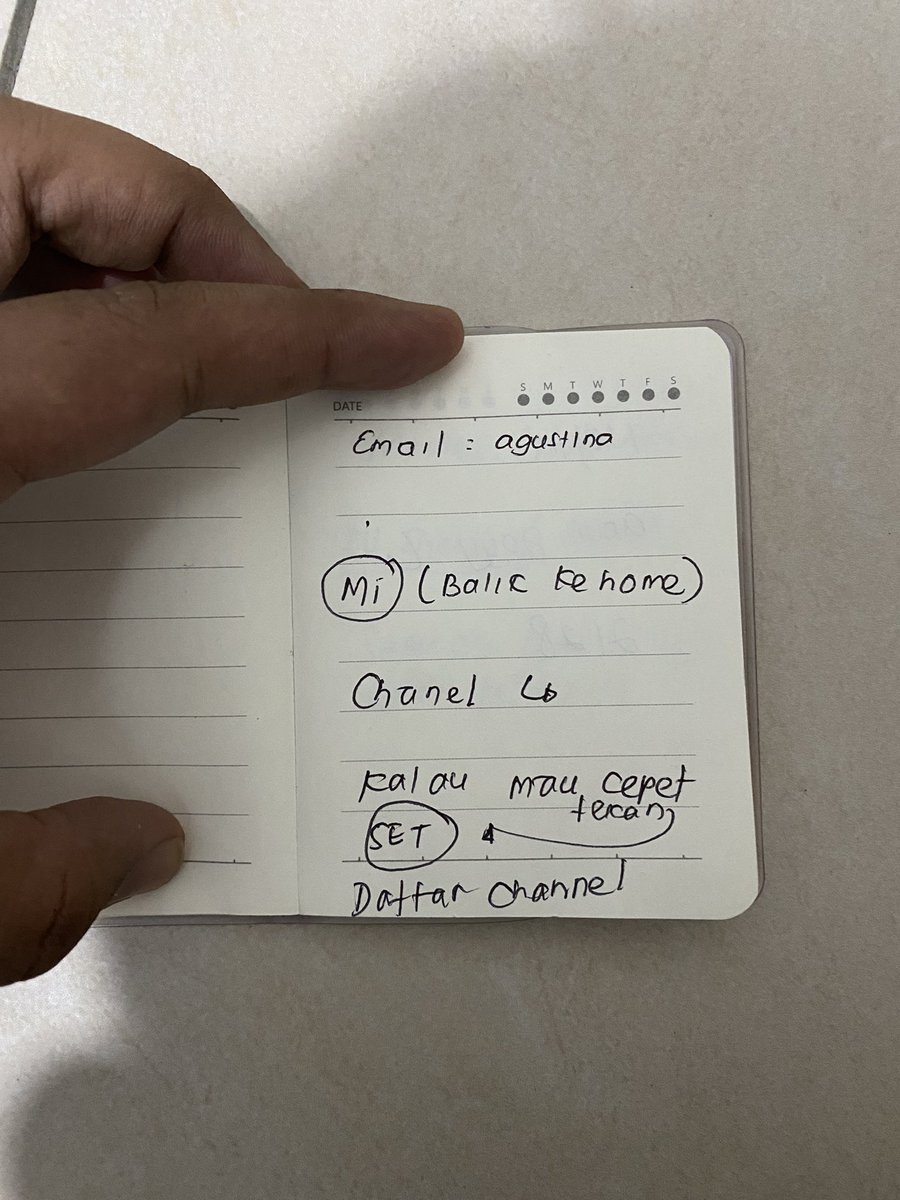 S M T W T F S
DATE
Email : agustina
Mi (Balik ke home)
Chanel ↳
Kalau mau cepet
tekan
SET
Daftar channel